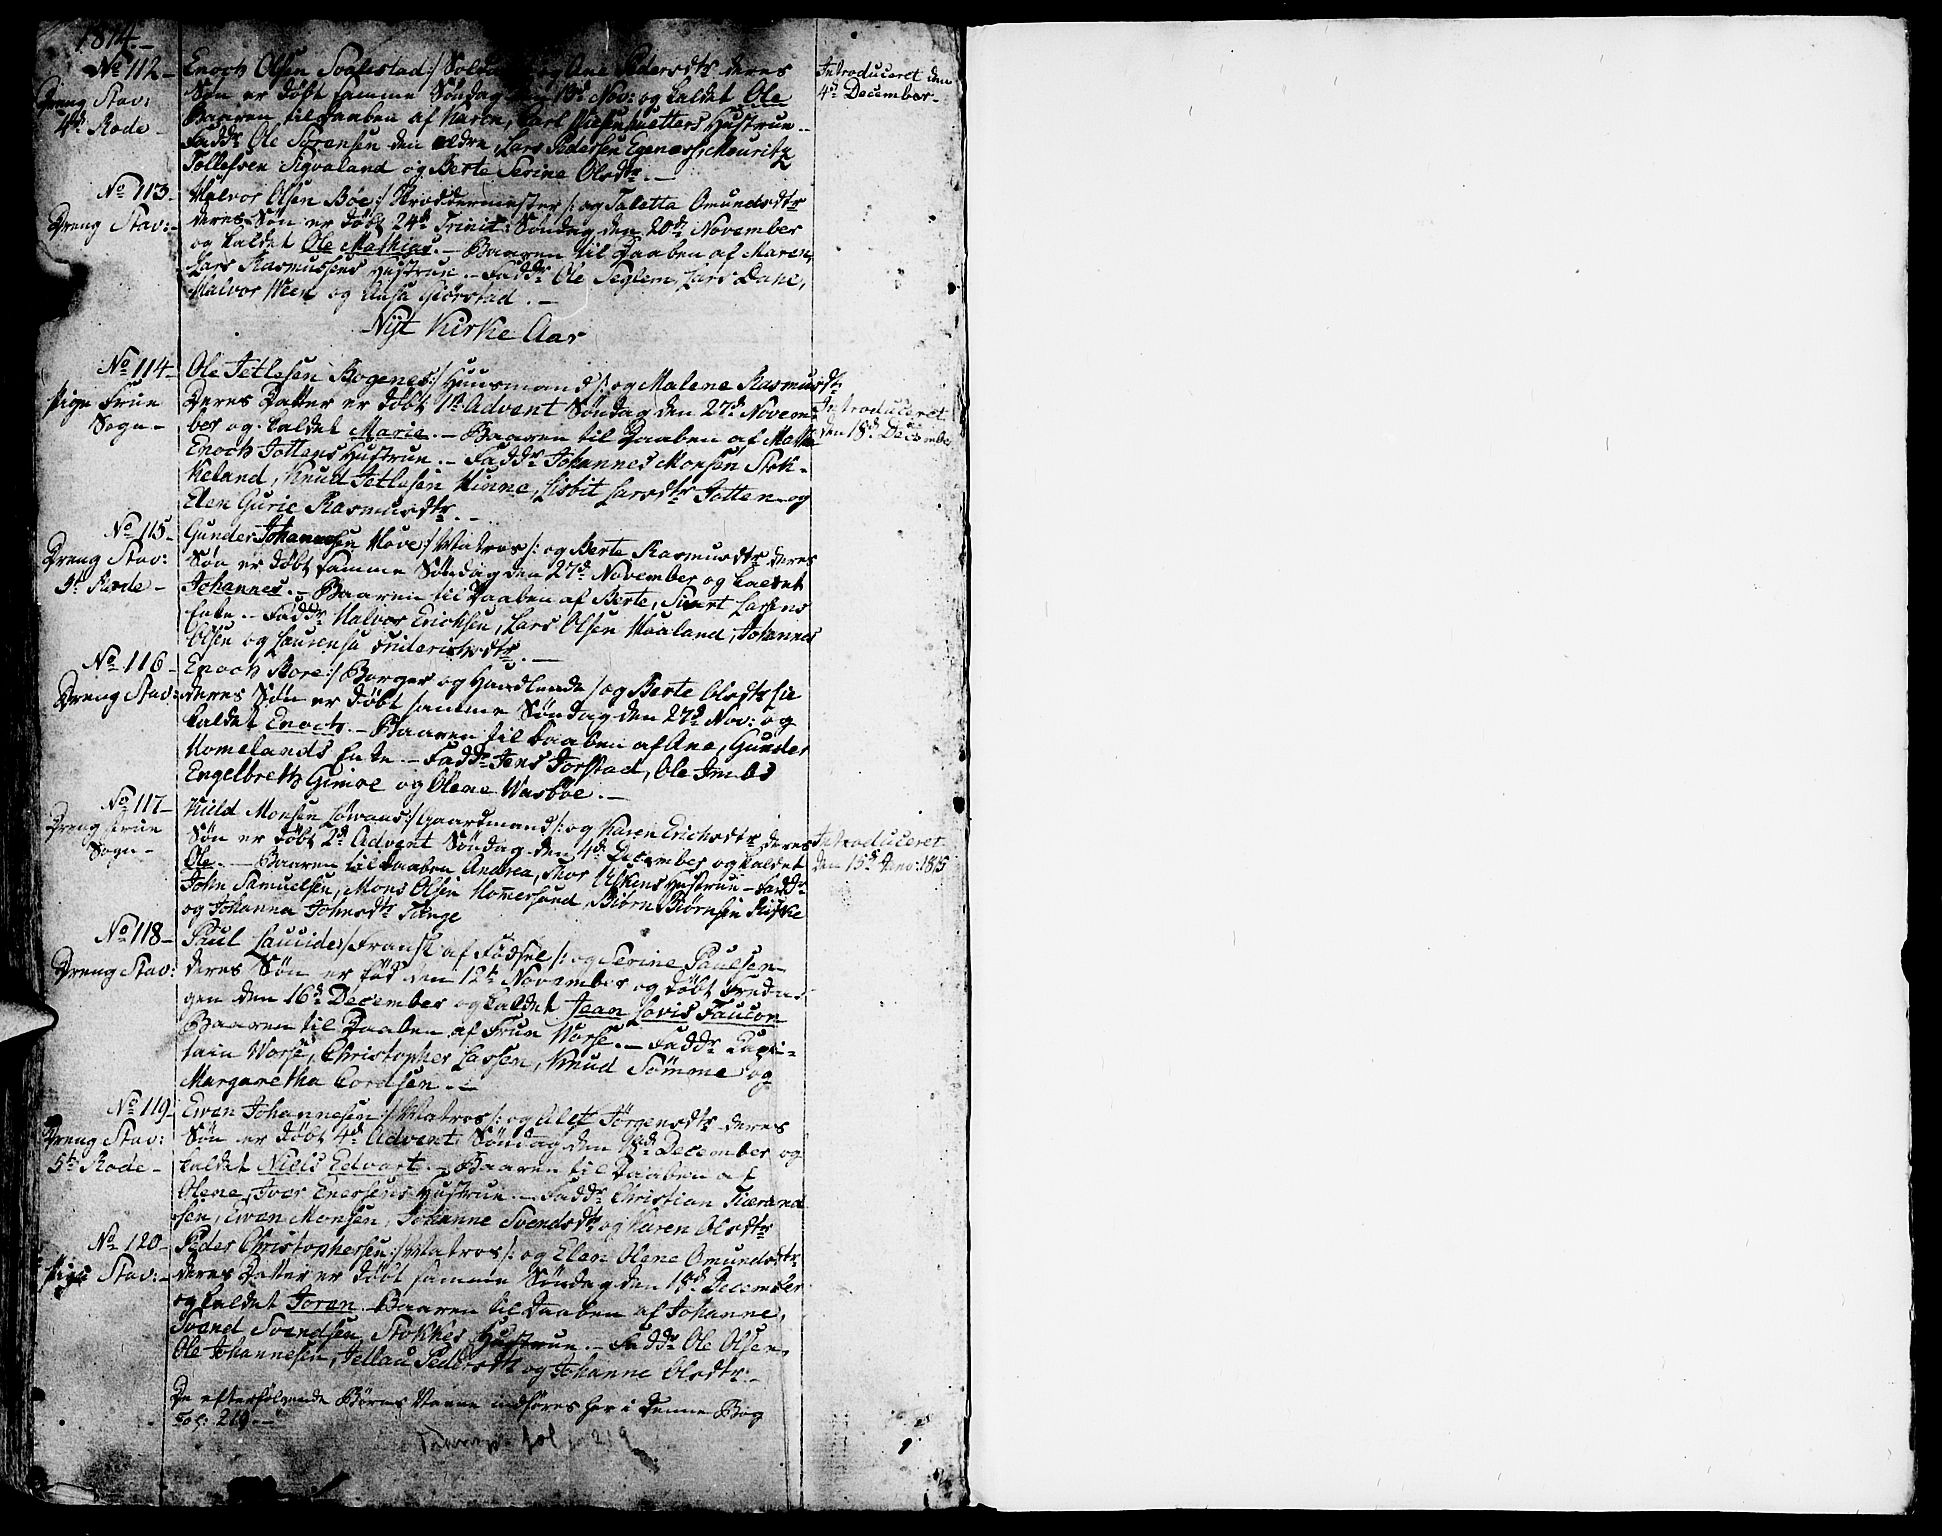 1814.-
No 112-
Dreng Stav:
4de Rode-
Enoch Olsen Soglestad:/ Soldat /: og Ane Pedersdtr deres
Søn er døbt samme Søndag den 13de Nov: og kaldet Ole
Baaren til Daaben af Karen, Carl Hustrue.-
Faddr Ole Sørensen den eldre, Lars Pedersen Egenes, Mouritz
Tollefsen Sigvaland og Berte Serine Olsdtr.-
Introduceret den
4de December-
No 113-
Dreng Stav:-
Halvor Olsen Bøe:/ Skreddermester /: og Taletta Omundsdtr
deres Søn er døbt 24de Trinit: Søndag den 20de November
og kaldet Ole Mathias.- Baaren til Daaben af Maren,
Lars Rasmussens Hustrue.- Faddr Ole Seglem, Lars Dane,
Halvor Weed og Giørstad.-
Nyt Kirke Aar
No 114-
Pige Frue
Sogn-
Ole Jetlesen Bogenes:/ Huusmand /: og Malene Rasmusdtr
Deres Datter er døbt 1ste Advent Søndag den 27de Novem-
ber og kaldet Marie.- Baaren til Daaben af
Enoch Jottens Hustrue.- Faddr Johannes Monsen Stok-
keland, Knud Jetlesen Hinne, Lisbit Larsdtr Jotten og
Elen Gurie Rasmusdtr.-
Introduceret
den 18de December
No 115-
Dreng Stav:
5te Rode-
Gunder Johannesen Hove:/ Matros /: og Berte Rasmusdtr deres
Søn er døbt samme Søndag den 27de November og kaldet
Johannes.- Baaren til Daaben af Berte, Siurt Larsens
Enke.- Faddr Halvor Erichsen, Lars Olsen Haaland, Johannes
Olsen og Laurensa Friderichsdtr.-
No 116-
Dreng Stav:
Enoch Kore:/ Borger og Handlende /: og Berte Olsdtr
deres Søn er døbt samme Søndag den 27de Nov: og
kaldet Enoch.- Baaren til Daaben af Ane, Gunder
Homelands Enke.- Faddr Jens Torstad, Ole Imbs
Engelbreth Gimre og Olene Wasbøe.-
No 117-
Dreng Frue
Sogn-
Kield Monsen Løvaas:/ Gaardmand /: og Karen Erichsdtr deres
Søn er døbt 2den Advent Søndag den 4de December og kaldet
Ole.- Baaren til Daaben Andrea, Thor Hustrue- Faddr
John Samuelsen, Mons Olsen Homersand, Biørn Biørnsen Riske
og Johanna Johnsdtr Tange
Introduceret
den 15de Janr: 1815
No 118-
Dreng Stav:
Paul :/ Fransk af Fødsel /: og Serine Paulsen-
deres Søn er fød den 12te November og døbt Freda-
gen den 16de December og kaldet Jean Lovis Faucon
Baaren til Daaben af Frue Worse.- Faddr Capi-
tain Worse, Christopher Lassen, Knud Sømme og
Margaretha Cordsen.-
No 119-
Dreng Stav:
5te Rode-
Ewen Johannesen:/ Matros /: og Alet Jørgensdtr deres
Søn er døbt 4de Advent Søndag den 18de December og
kaldet Niels Edvart.- Baaren til Daaben af
Olene, Iver Enersens Hustrue.- Faddr Christian Tierand-
sen, Ewen Monsen, Johanne Svendsdtr og Karen Olsdtr
No 120-
Pige Stav:-
Peder Christophersen:/ Matros /: og Elen Olene Omundsdtr
deres Datter er døbt samme Søndag den 18de December
og kaldet Joran.- Baaren til Daaben af Johanne,
Svend Svendsen Stokkes Hustrue.- Faddr Ole Olsen,
Ole Johannesen, Jellau Pedersdtr og Johanne Olsdtr.-
De efterfølgende Børns Navne indføres her i denne Bog
Fol: 219.-
fol 219